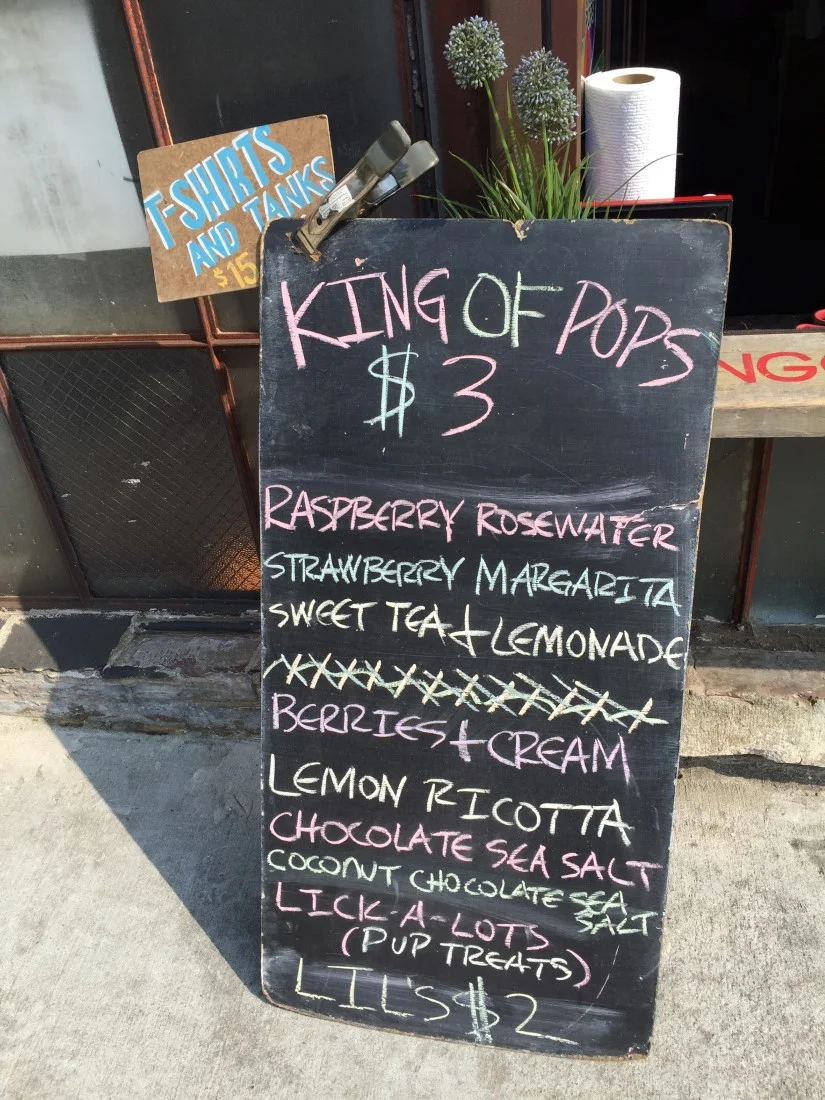 T-SHIRTS
AND TANKS
$15
KING OF POPS
$3
RASPBERRY ROSEWATER
STRAWBERRY MARGARITA
SWEET TEA + LEMONADE
BERRIES + CREAM
LEMON RICOTTA
CHOCOLATE SEA SALT
COCONUT CHOCOLATE SEA
SALT
LICK-A-LOTS
(PUP TREATS)
LIL'S $2